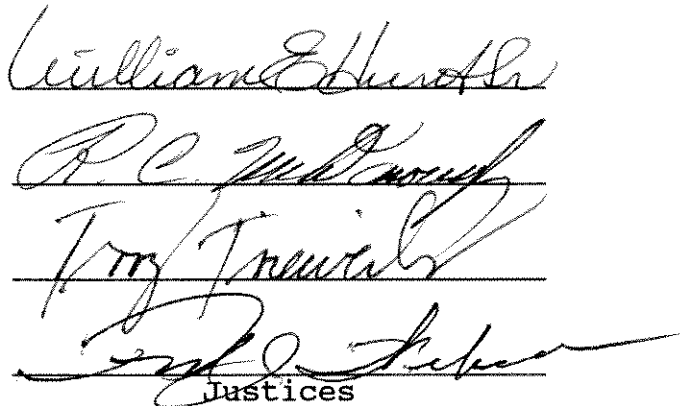 William E Hunt Sr
R. C. McDonough
Terry Trieweiler
Justices